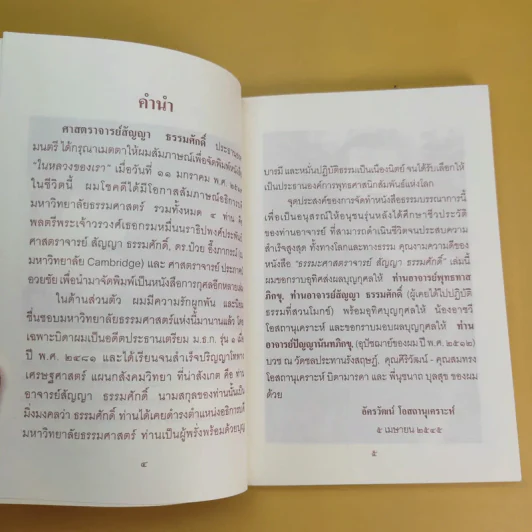 คำนำ
ศาสตราจารย์สัญญา ธรรมศักดิ์ ประธานองค
มนตรี ได้กรุณาเมตตาให้ผมสัมภาษณ์เพื่อจัดพิมพ์หนังสือ
"ในหลวงของเรา" เมื่อวันที่ ๑๑ มกราคม พ.ศ.
ในชีวิตนี้ ผมโชคดีได้มีโอกาสสัมภาษณ์อธิการบดี
มหาวิทยาลัยธรรมศาสตร์ รวมทั้งหมด ๔ ท่าน
พลตรีพระเจ้าวรวงศ์เธอกรมหมื่นนราธิปพงศ์ประพันธ์
ศาสตราจารย์ สัญญา ธรรมศักดิ์, ดร.ป๋วย อึ๊งภากรณ์
มหาวิทยาลัย Cambridge) และ ศาสตราจารย์ ประภาศน์
อวยชัย เพื่อนำมาจัดพิมพ์เป็นหนังสือการกุศลอีกหลายเล่ม
ในด้านส่วนตัว ผมมีความรักผูกพัน และนิยม
ชื่นชอบมหาวิทยาลัยธรรมศาสตร์แห่งนี้มานานแล้ว โดย
เฉพาะบิดาผมเป็นอดีตประธานเตรียม ม.ธ.ก. รุ่น ๑
ปี พ.ศ. ๒๔๘๑ และได้เรียนจนสำเร็จปริญญาโททาง
เศรษฐศาสตร์ แผนกสังคมวิทยา ที่น่าสังเกต คือ ท่าน
อาจารย์สัญญา ธรรมศักดิ์ นามสกุลของท่านนั้นเป็น
มิ่งมงคลว่า ธรรมศักดิ์ ท่านได้เคยดำรงตำแหน่งอธิการบดี
มหาวิทยาลัยธรรมศาสตร์ ท่านเป็นผู้พรั่งพร้อมด้วยบุญ
๔
บารมี และหมั่นปฏิบัติธรรมเป็นเนืองนิตย์ จนได้รับเลือกให้
เป็นประธานองค์การพุทธศาสนิกสัมพันธ์แห่งโลก
จุดประสงค์ของการจัดทำหนังสือธรรมบรรณาการนี้
เพื่อเป็นอนุสรณ์ให้อนุชนรุ่นหลังได้ศึกษาชีวประวัติ
ของท่านอาจารย์ ที่สามารถดำเนินชีวิตจนประสบความ
สำเร็จสูงสุด ทั้งทางโลกและทางธรรม คุณงามความดีของ
หนังสือ "ธรรมะศาสตราจารย์ สัญญา ธรรมศักดิ์" เล่มนี้
ผมขอกราบอุทิศส่งผลบุญกุศลให้ ท่านอาจารย์พุทธทาส
ภิกขุ, ท่านอาจารย์สัญญา ธรรมศักดิ์ (ผู้เคยได้ไปปฏิบัติ
ธรรมที่สวนโมกข์) พร้อมอุทิศบุญกุศลให้ น้องอาชวี
โอสถานุเคราะห์ และขอกราบมอบผลบุญกุศลให้ ท่าน
อาจารย์ปัญญานันทภิกขุ, (อุปัชฌาย์ของผม ปี พ.ศ. ๒๕๑๒)
บวช ณ วัดชลประทานรังสฤษฎิ์, คุณศิริวัฒน์ - คุณสมทรง
โอสถานุเคราะห์ บิดามารดา และ พี่นุชนาถ บุลสุข ของผม
ด้วย
อัครวัฒน์ โอสถานุเคราะห์
๕ เมษายน ๒๕๔๕
๕